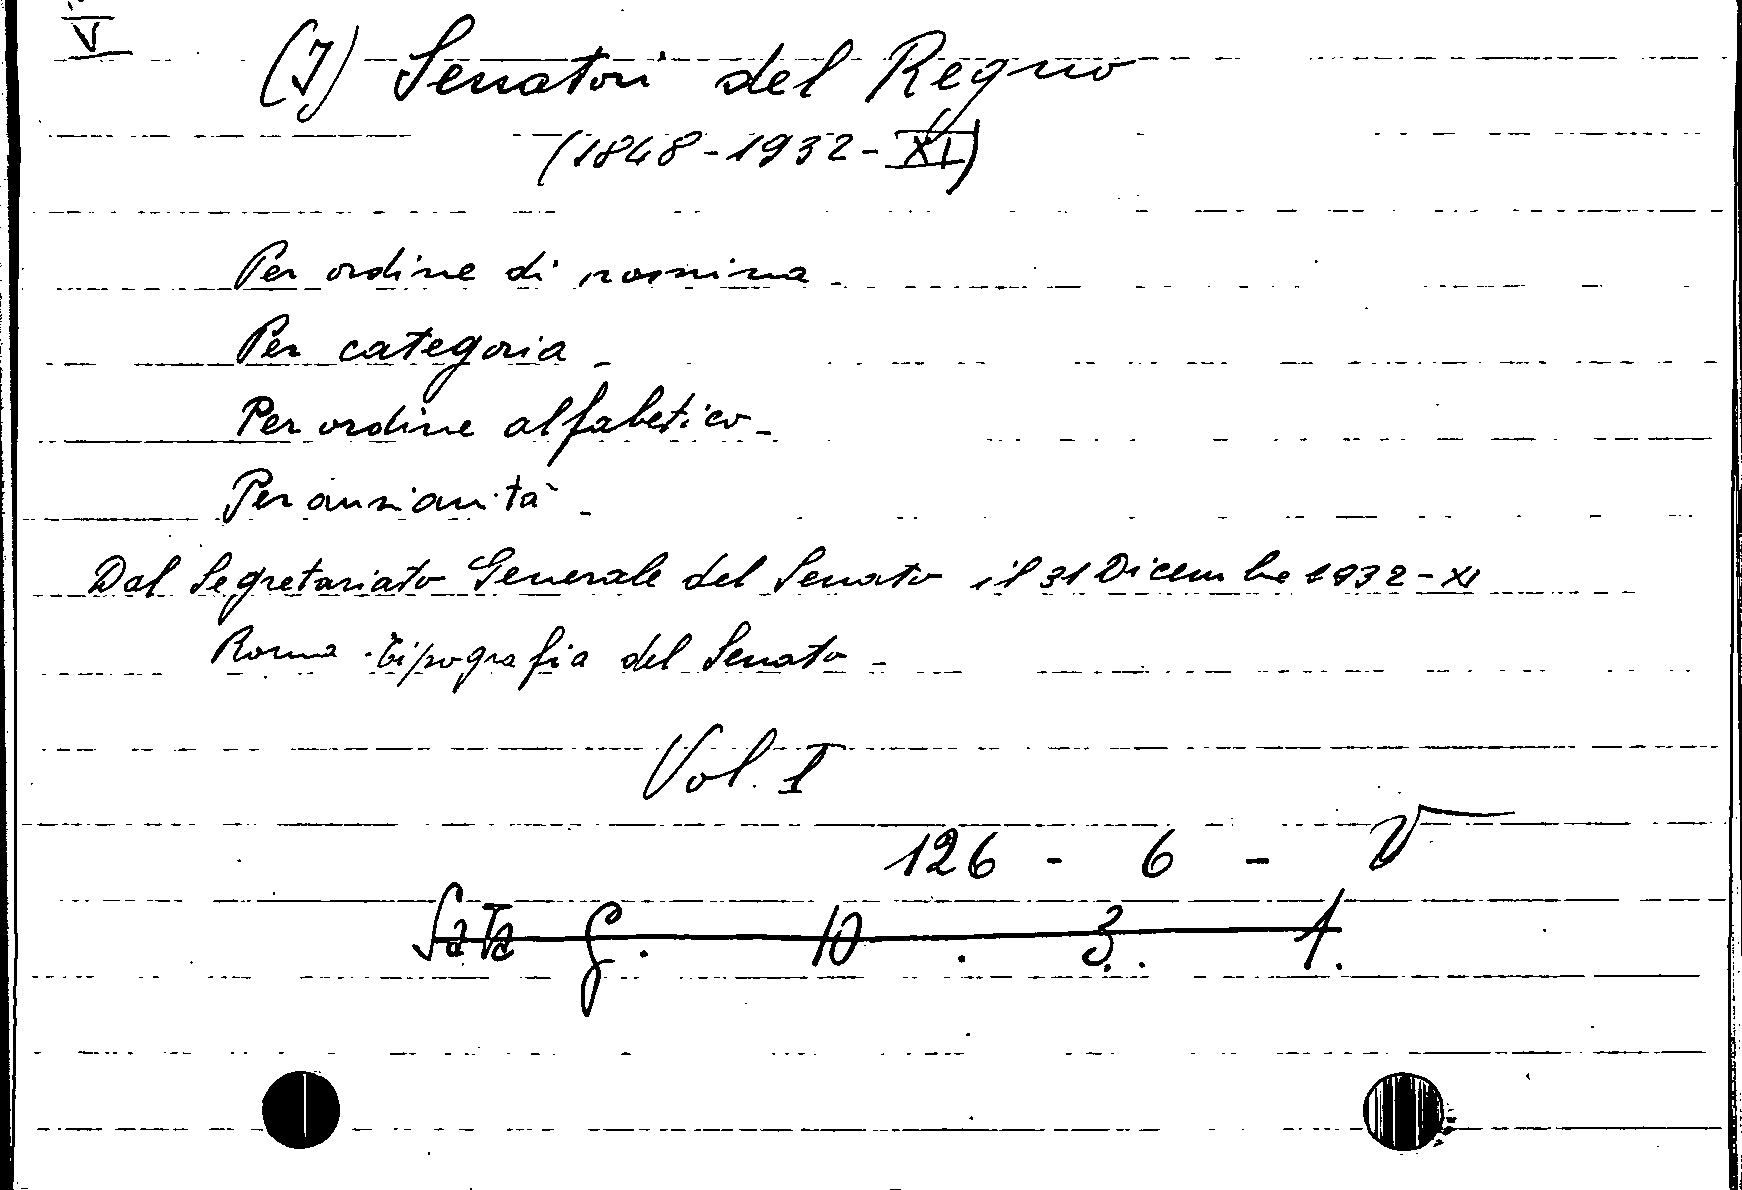 V
(I) Senatori del Regno
(1848-1932-XI)
Per ordine di nomina
Per categoria
Per ordine alfabetico
Per anzianità
Dal Segretariato Generale del Senato il 31 Dicembre 1932-XI
Roma. tipografia del Senato
Vol. I
126 - 6 - V
Sala G. 10. 3. 1.